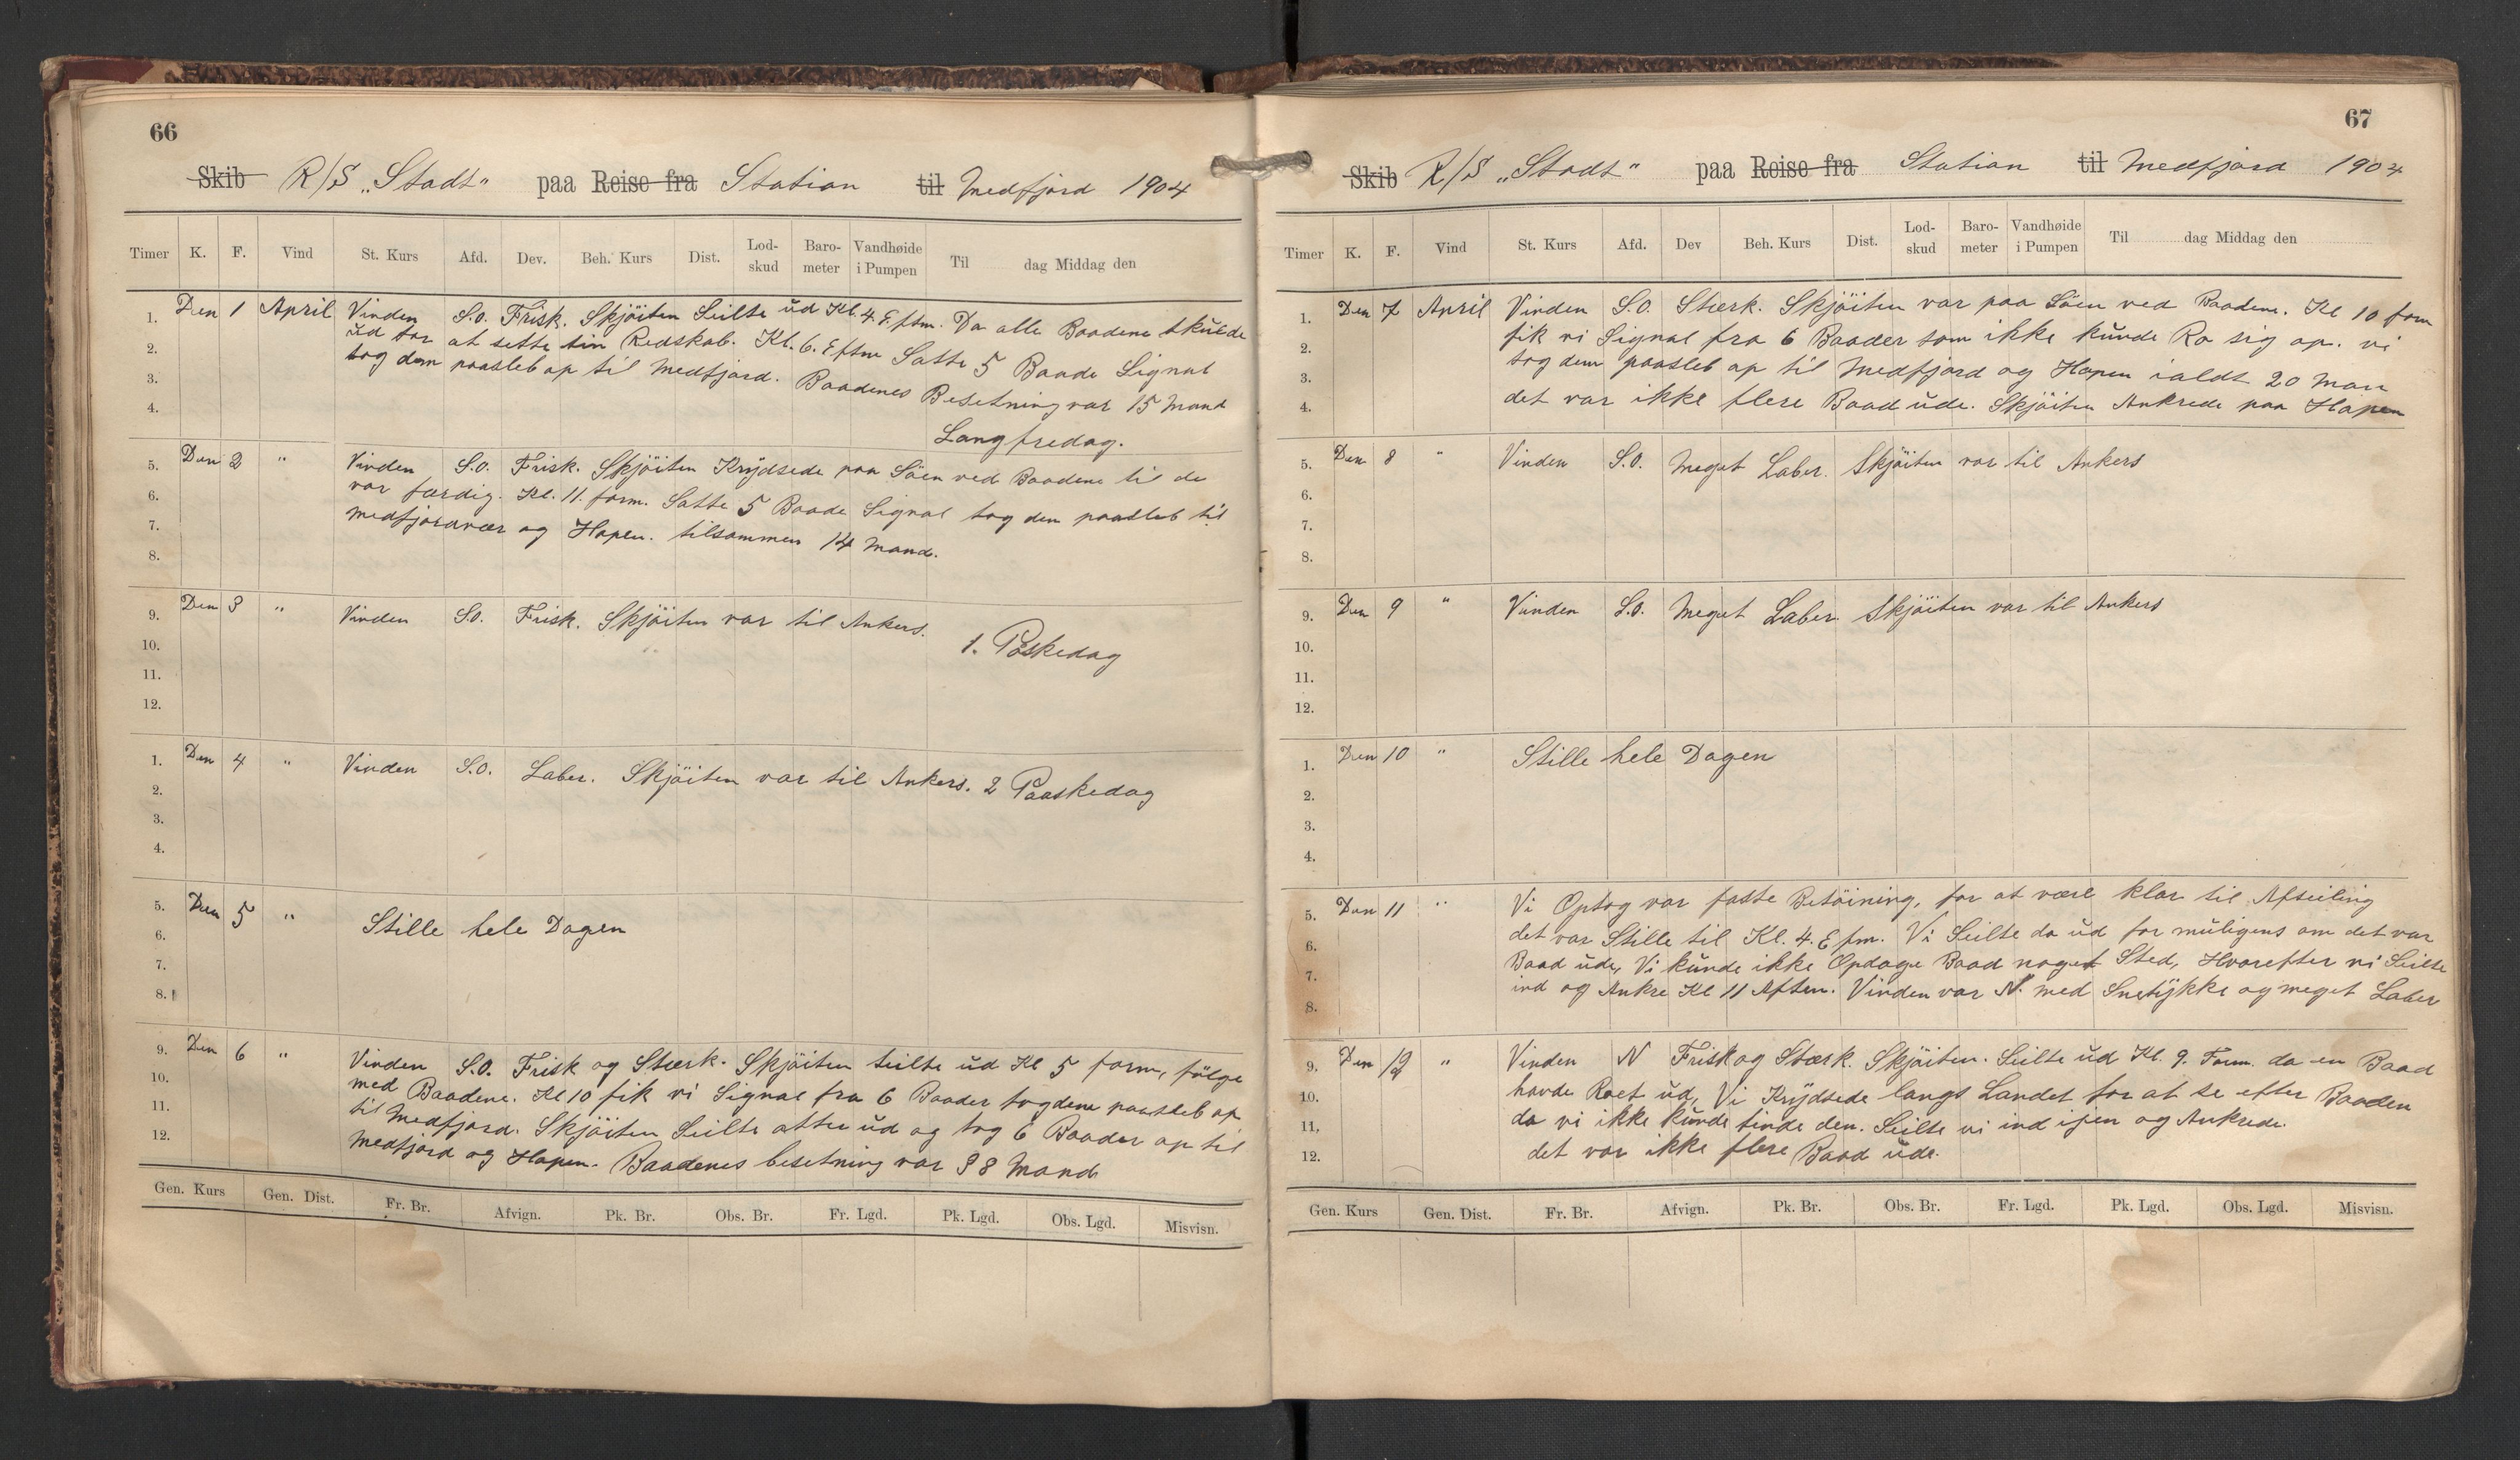 66
Skib R/S „Stadt" paa Reise fra Station til Medfjord 1904
Timer K. F. Vind St. Kurs Afd. Dev. Beh. Kurs Dist. Lod-skud Baro-meter Vandhøide i Pumpen Til dag Middag den
1. Den 1 April Vinden S.O. Frisk. Skjöiten Seilte ud Kl. 4 Eftm. Da alle Baadene skulde
2. ud for at sette sin Redskab. Kl. 6. Eftm Satte 5 Baade Signal
3. tog dem paasleb op til Medfjord. Baadenes Besetning var 15 Mand
4. Langfredag.
5. Den 2 " Vinden S.O. Frisk. Skjöiten Krydsede paa Söen ved Baadene til de
6. var færdig. Kl. 11. form. Satte 5 Baade Signal tog dem paasleb til
7. Medfjordvær og Hopen. tilsammen 14 Mand.
8.
9. Den 3 " Vinden S.O. Frisk. Skjöiten var til Ankers.
10. 1. Påskedag
11.
12.
1. Den 4 " Vinden S.O. Laber. Skjöiten var til Ankers. 2 Paaskedag
2.
3.
4.
5. Den 5 " Stille hele Dagen
6.
7.
8.
9. Den 6 " Vinden S.O. Frisk og Stærk. Skjöiten seilte ud Kl 5 form, fölge
10. med Baadene. Kl 10 fik vi Signal fra 6 Baader tog dem paasleb op
11. til Medfjord. Skjöiten Seilte atter ud og tog 6 Baader op til
12. Medfjord og Hopen. Baadenes besetning var 38 Mand
Gen. Kurs Gen. Dist. Fr. Br. Afvign. Pk. Br. Obs. Br. Fr. Lgd. Pk. Lgd. Obs. Lgd. Misvisn.
67
Skib R/S „Stadt" paa Reise fra Station til Medfjord 1904
Timer K. F. Vind St. Kurs Afd. Dev Beh. Kurs Dist. Lod-skud Baro-meter Vandhøide i Pumpen Til dag Middag den
1. Den 7 April Vinden S.O. Stærk. Skjöiten var paa Söen ved Baadene. Kl 10 form
2. fik vi Signal fra 6 Baader som ikke kunde Ro sig op. vi
3. tog dem paasleb op til Medfjord og Hopen ialdt 20 Man
4. det var ikke flere Baad ude. Skjöiten Ankrede paa Hopen
5. Den 8 " Vinden S.O. Meget Laber. Skjöiten var til Ankers
6.
7.
8.
9. Den 9 " Vinden S.O. Meget Laber. Skjöiten var til Ankers
10.
11.
12.
1. Den 10 " Stille hele Dagen
2.
3.
4.
5. Den 11 " Vi Optog vor faste Betöining, for at være klar til Afseiling
6. det var Stille til Kl. 4. Efm. Vi Seilte da ud for muligens om det var
7. Baad ude, Vi kunde ikke Opdage Baad noget Sted, Hvorefter vi Seilte
8. ind og Ankre Kl 11 Aften. Vinden var N. med Snetykke og meget Laber
9. Den 12 " Vinden N Frisk og Stærk. Skjöiten. Seilte ud Kl. 9. Form. da en Baad
10. havde Roet ud, Vi Krydsede langs Landet for at se efter Baaden
11. da vi ikke kunde finde den. Seilte vi ind igen og Ankrede.
12. det var ikke flere Baad ude.
Gen. Kurs Gen. Dist. Fr. Br. Afvign. Pk. Br. Obs. Br. Fr. Lgd. Pk. Lgd. Obs. Lgd. Misvisn.